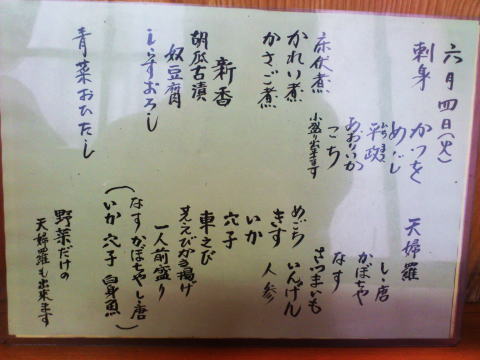 六月四日(火)
刺身
かつを
めじ
平政
あおりいか
こち
小盛り出来ます
床伏煮
かれい煮
かさご煮
新香
胡瓜古漬
奴豆腐
しらすおろし
青菜おひたし
天婦羅
しし唐
かぼちゃ
なす
さつまいも
いんげん
人参
めごち
きす
いか
穴子
車えび
芝えびかき揚げ
一人前盛り
(なすかぼちゃしし唐
いか 穴子 白身魚)
野菜だけの
天婦羅も出来ます